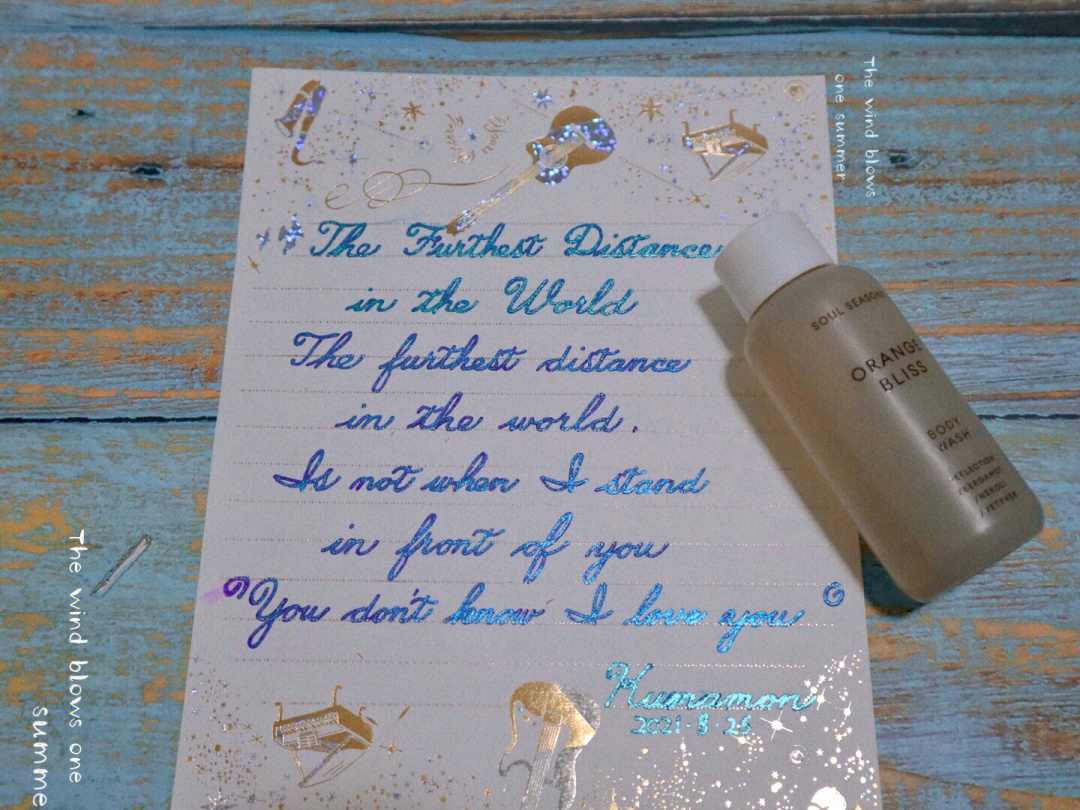 The wind blows
one summer
The Furthest Distance
in the World
The furthest distance
in the world.
Is not when I stand
in front of you
You don't know I love you
Humamon
2021·8·26
SOUL SEASONS
ORANGE
BLISS
BODY
WASH
REFLECTION
/BERGAMOT
/NEROLI
/VETYVER
The wind blows one
summe